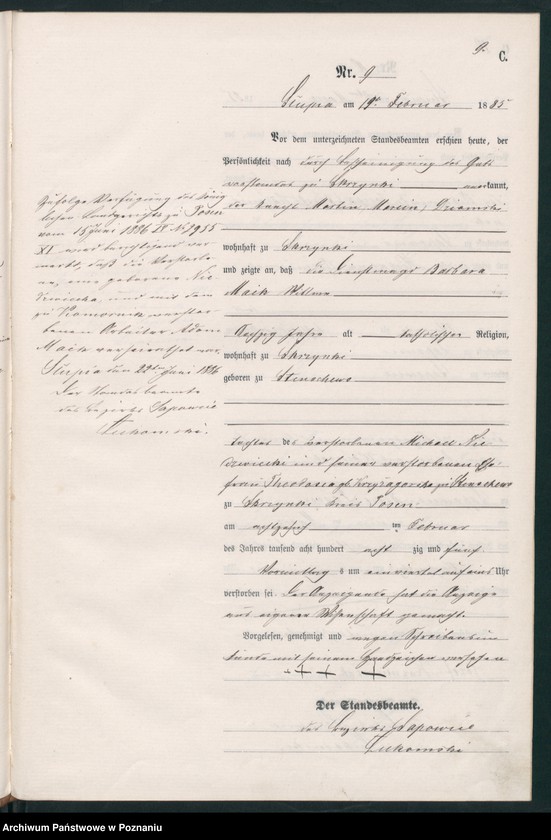 9.
C.
Nr. 9
Słupia am 19. Februar 1885
Vor dem unterzeichneten Standesbeamten erschien heute, der
Persönlichkeit nach durch Bescheinigung des Guts
vorstandes zu Skrzynki anerkannt,
der Knecht Martin Marcin
wohnhaft zu Skrzynki
und zeigte an, daß die Dienstmagd Barbara
Maik Wittwe
sechzig Jahre alt katholischer Religion,
wohnhaft zu Skrzynki
geboren zu Stenschewo
Tochter des verstorbenen Michael Nie
dzwiecki und seiner verstorbenen Ehe
frau Theodosia zu Stenschewo
zu Skrzynki Kreis Posen
am achtzehnten Februar
des Jahres tausend acht hundert acht zig und fünf
Vormittags um ein viertel auf eins Uhr
verstorben sei. Der Anzeigende hat die Anzeige
aus eigener Wissenschaft gemacht.
Vorgelesen, genehmigt und wegen Schreibensun
kunde mit seinem Handzeichen versehen
+++ +
Der Standesbeamte.
des Bezirks Sapowice
Łukomski
Zufolge Verfügung des König
lichen Landgerichts zu Posen
vom 15 Juni 1886 9955
XV wird berichtigend ver
merkt, daß die Verstorbe
ne, eine geborene Nie
dzwiecka, und mit dem
zu verstor
benen Arbeiter Adam
Maik verheirathet war.
Słupia den 22ten Juni 1886
Der Standesbeamte
des Bezirks Sapowice
Łukomski.
Archiwum Państwowe w Poznaniu